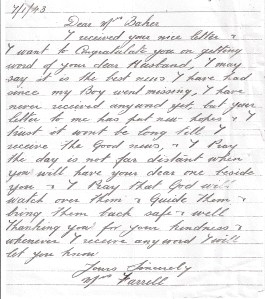 7/1/43
Dear Mrs Baker
I received your nice letter &
I want to Congratulate you on getting
word of your dear Husband, I may
say it is the best news I have had
since my Boy went missing, I have
never received any word yet, but your
letter to me has put new hopes & I
trust it wont be long till I
receive the Good news, & I Pray
the day is not far distant when
you will have your dear one beside
you & I Pray that God will
watch over them & Guide them &
bring them back safe & well
thanking you for your kindness &
whenever I receive any word I will
let you know
Yours Sincerely
Mrs Farrell